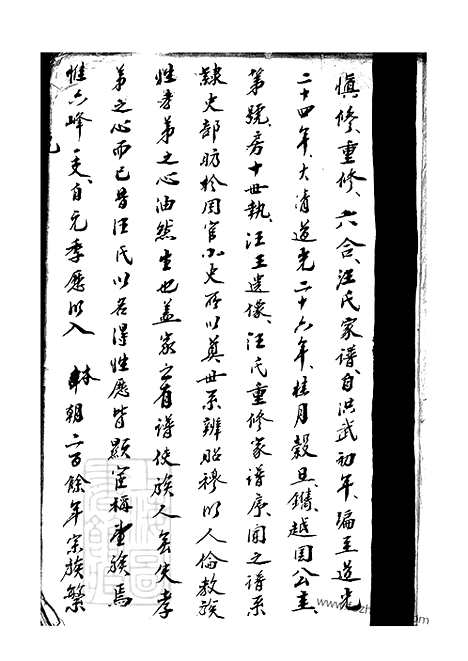 慎修、重修、六合、汪氏家谱、自洪武初年、编至道光
二十四年、大清道光二十六年、桂月穀旦、鐫、越囯公主、
第號、房十世執、汪王遗像、汪氏重修家谱序、闻之谱系
隸史部昉於周官小史所以奠世系辨昭穆以人倫教族
性孝弟之心油然生也盖家之有谱使族人无失孝
弟之心而已昔汪氏以名得性應皆顯宦稱望族焉
惟六峰一支、自元季應以入 本朝二百餘年宗族繁